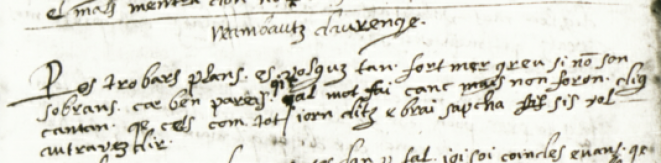 el mals mentra
Rambautz daurenqe.
Pos trobars plans. es vosguz tan. fort mer greu si nō son
sobrans. car ben pareis. qe qal mot fai canc mais non foron. dig
cantan. qe cels com. tot iorn ditz e brai sapcha sis vol
autravez dir.
fan p sal. ioi soi coindes evans. qe